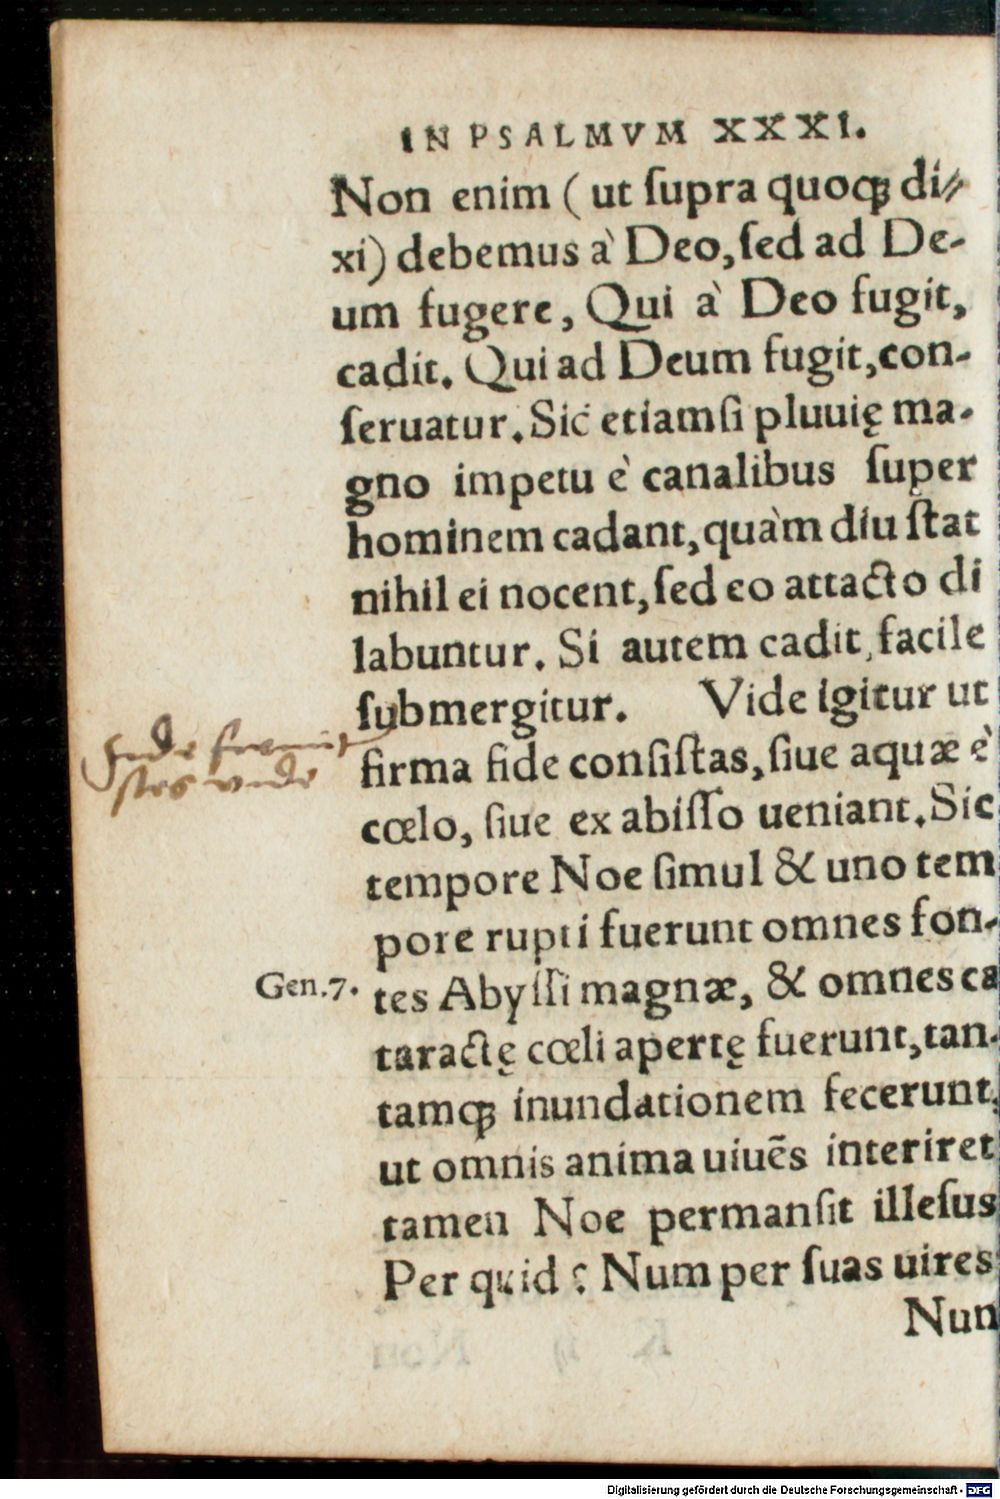 IN PSALMVM XXXI.
Non enim ( ut ſupra quoqꝫ di⸗
xi) debemus à Deo, ſed ad De-
um fugere, Qui à Deo fugit,
cadit. Qui ad Deum fugit, con-
ſeruatur. Sic etiamſi pluuię ma-
gno impetu è canalibus ſuper
hominem cadant, quàm diu ſtat
nihil ei nocent, ſed eo attacto di
labuntur. Si autem cadit, facile
ſubmergitur. Vide igitur ut
firma fide conſiſtas, ſiue aquæ è
cœlo, ſiue ex abiſſo ueniant. Sic
tempore Noe ſimul & uno tem
pore rupti fuerunt omnes fon-
Gen.7. tes Abyſſi magnæ, & omnes ca
taractę cœli apertę fuerunt, tan-
tamqꝫ inundationem fecerunt,
ut omnis anima uiuẽs interiret
tamen Noe permanſit illeſus
Per quid ? Num per ſuas uires
Nun
Digitalisierung gefördert durch die Deutsche Forschungsgemeinschaft - DFG